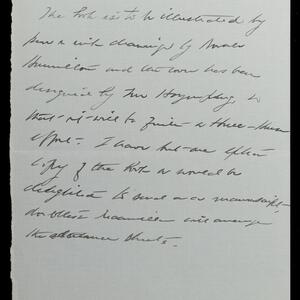 The book is to be illustrated by
pen & ink drawings by
Hamilton and the cover has been
designed by Mr Humphrey, so
that it will be quite a three
effort. I have but one other
copy of the book & would be
delighted to send as a manuscript,
doubtless will arrange
the advance sheets.